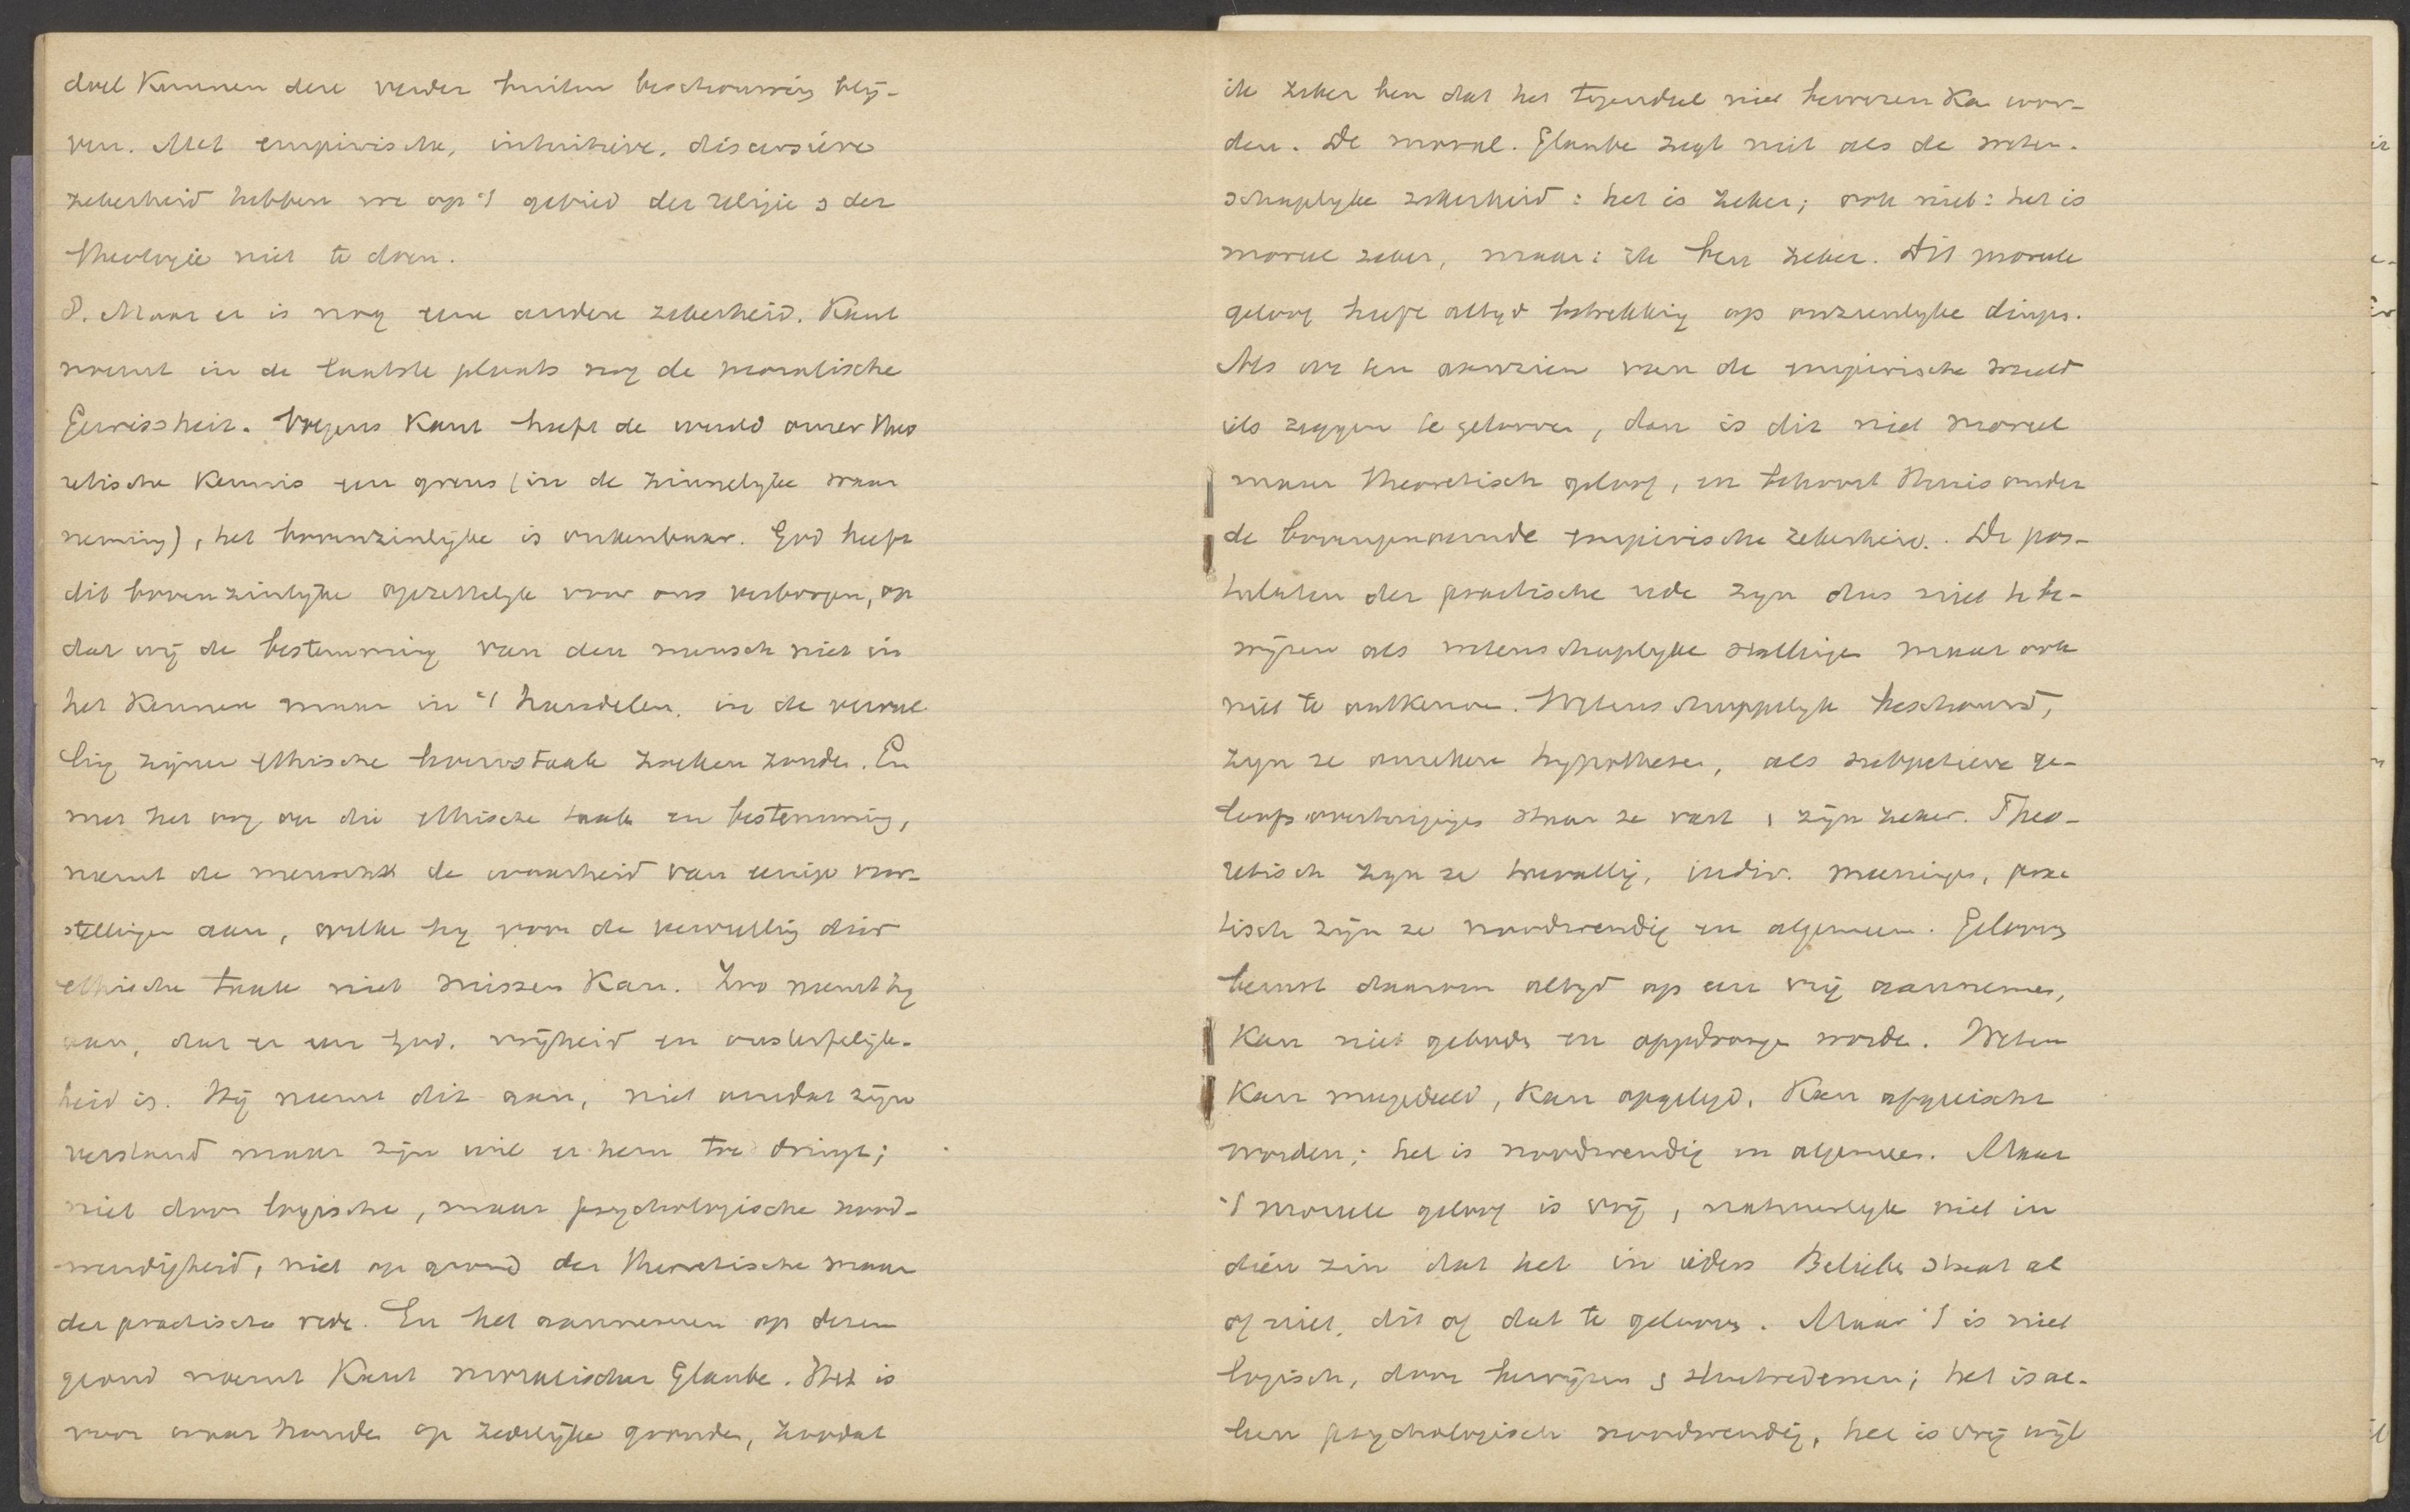 doel kunnen deze verder buiten beschouwing blij-
ven. Met empirische, intuitieve, discursieve
zekerheid hebben we op 't gebied der religie & der
theologie niet te doen.
8. Maar er is nog eene andere zekerheid. Kant
noemt in de laatste plaats nog de moralische
Gewissheit. Volgens Kant heeft de wereld onzer theo
retische kennis een grens (in de zinnelyke waar
neming), het bovenzinlyke is onkenbaar. God heeft
dit bovenzinlyke opzettelyk voor ons verborgen, op
dat wij de bestemming van den mensch niet in
het kennen maar in 't handelen, in de vervul
ling zijner ethische levenstaak zoeken zouden. En
met het oog op die ethische taak en bestemming,
neemt de mensch de waarheid van eenige voor-
stellingen aan, welke hy voor de vervulling dier
ethische taak niet missen kan. Zoo neemt hy
aan, dat er een God, vrijheid en onsterfelijk-
heid is. Hij neemt dit aan, niet omdat zijn
verstand maar zijn wil er hem toe dringt;
niet door logische, maar psychologische nood-
wendigheid, niet op grond der theoretische maar
der practische rede. En het aannemen op dezen
grond noemt Kant moralischer Glaube. Het is
voor waar houden op zedelijke gronden, zoodat
ik zeker ben dat het tegendeel niet bewezen ka wor-
den. De moral. Glaube zegt niet als de weten-
schaplyke zekerheid: het is zeker; ook niet: het is
moreel zeker, maar: ik ben zeker. Dit moreele
geloof heeft altyd betrekking op onzienlyke dingen.
Als we ten aanzien van de empirische wereld
iets zeggen te gelooven, dan is dit niet moreel
maar theoretisch geloof, en behoort thuis onder
de bovengenoemde empirische zekerheid. De pos-
tulaten der practische rede zyn dus niet te be-
wijzen als wetenschaplyke stellingen maar ook
niet te ontkennen. Wetenschappelyk beschouwd,
zyn ze onzekere hypothesen, als subjectieve ge-
loofsovertuigingen staan ze vast & zijn zeker. Theo-
retisch zyn ze toevallig, indiv. meeningen, prac
tisch zijn ze noodwendig en algemeen. Gelooven
berust daarom altyd op een vrij aannemen,
kan niet geboden en opgedrongen worden. Weten
kan meegedeeld, kan opgelegd, kan afgeëischt
worden; het is noodwendig en algemeen. Maar
't moreele geloof is vrij, natuurlyk niet in
dien zin dat het in ieders Belieben staat al
of niet, dit of dat te gelooven. Maar 't is niet
logisch, door bewijzen & sluitredenen; het is al-
leen psychologisch noodwendig, het is vrij wijl